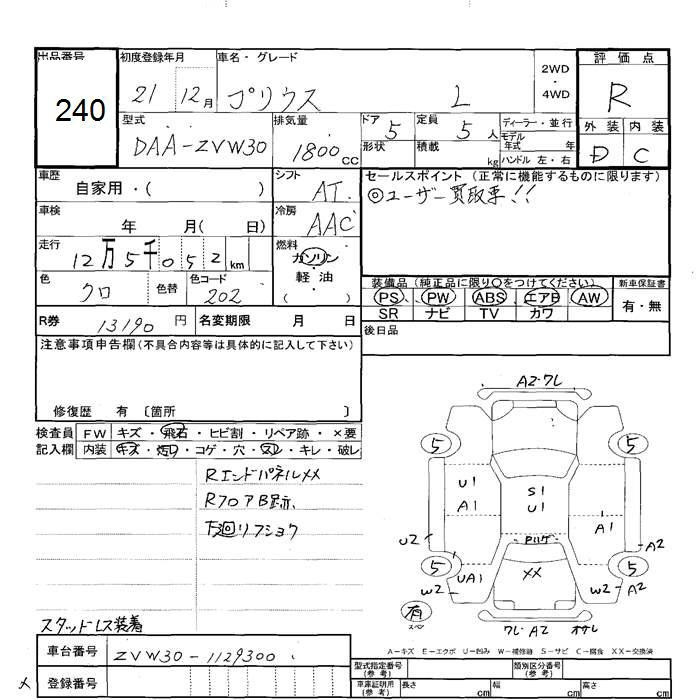 出品番号
240
初度登録年月
21 12月
車名・グレード
プリウス L
2WD
4WD
評価点
R
外装 内装
D C
型式
DAA-ZVW30
排気量
1800cc
ドア
5
定員
5人
形状
積載
kg
ディーラー・並行
モデル年式 年
ハンドル 左・右
車歴
自家用・( )
シフト
AT
セールスポイント(正常に機能するものに限ります)
◎ユーザー買取車!!
車検
年 月( 日)
冷房
AAC
走行
12万5千052km
燃料
ガソリン
・
軽油
( )
色
クロ
色替
色コード
202
装備品(純正品に限り○をつけてください)
PS PW ABS エアB AW
SR ナビ TV カワ
新車保証書
有・無
R券
13190円
名変期限 月 日
後日品
注意事項申告欄(不具合内容等は具体的に記入して下さい)
修復歴 有〔箇所 〕
検査員記入欄
FW キズ・飛石・ヒビ割・リペア跡・×要
内装 キズ・汚レ・コゲ・穴・スレ・キレ・破レ
RエンドパネルXX
RフロアB跡.
下廻リフショク
スタッドレス装着
A2・ワレ
5 5
U1
A1
S1
U1
A1
U2
A2
Pハゲ
5 5
UA1
XX
W2
W2 A2
有
スペア
ワレ A2 オサレ
A-キズ E-エクボ U-凹み W-補修跡 S-サビ C-腐食 XX-交換済
車台番号
ZVW30-1129300
登録番号
型式指定番号
(参考)
類別区分番号
(参考)
車庫証明用
(参考)
長さ cm
幅 cm
高さ cm